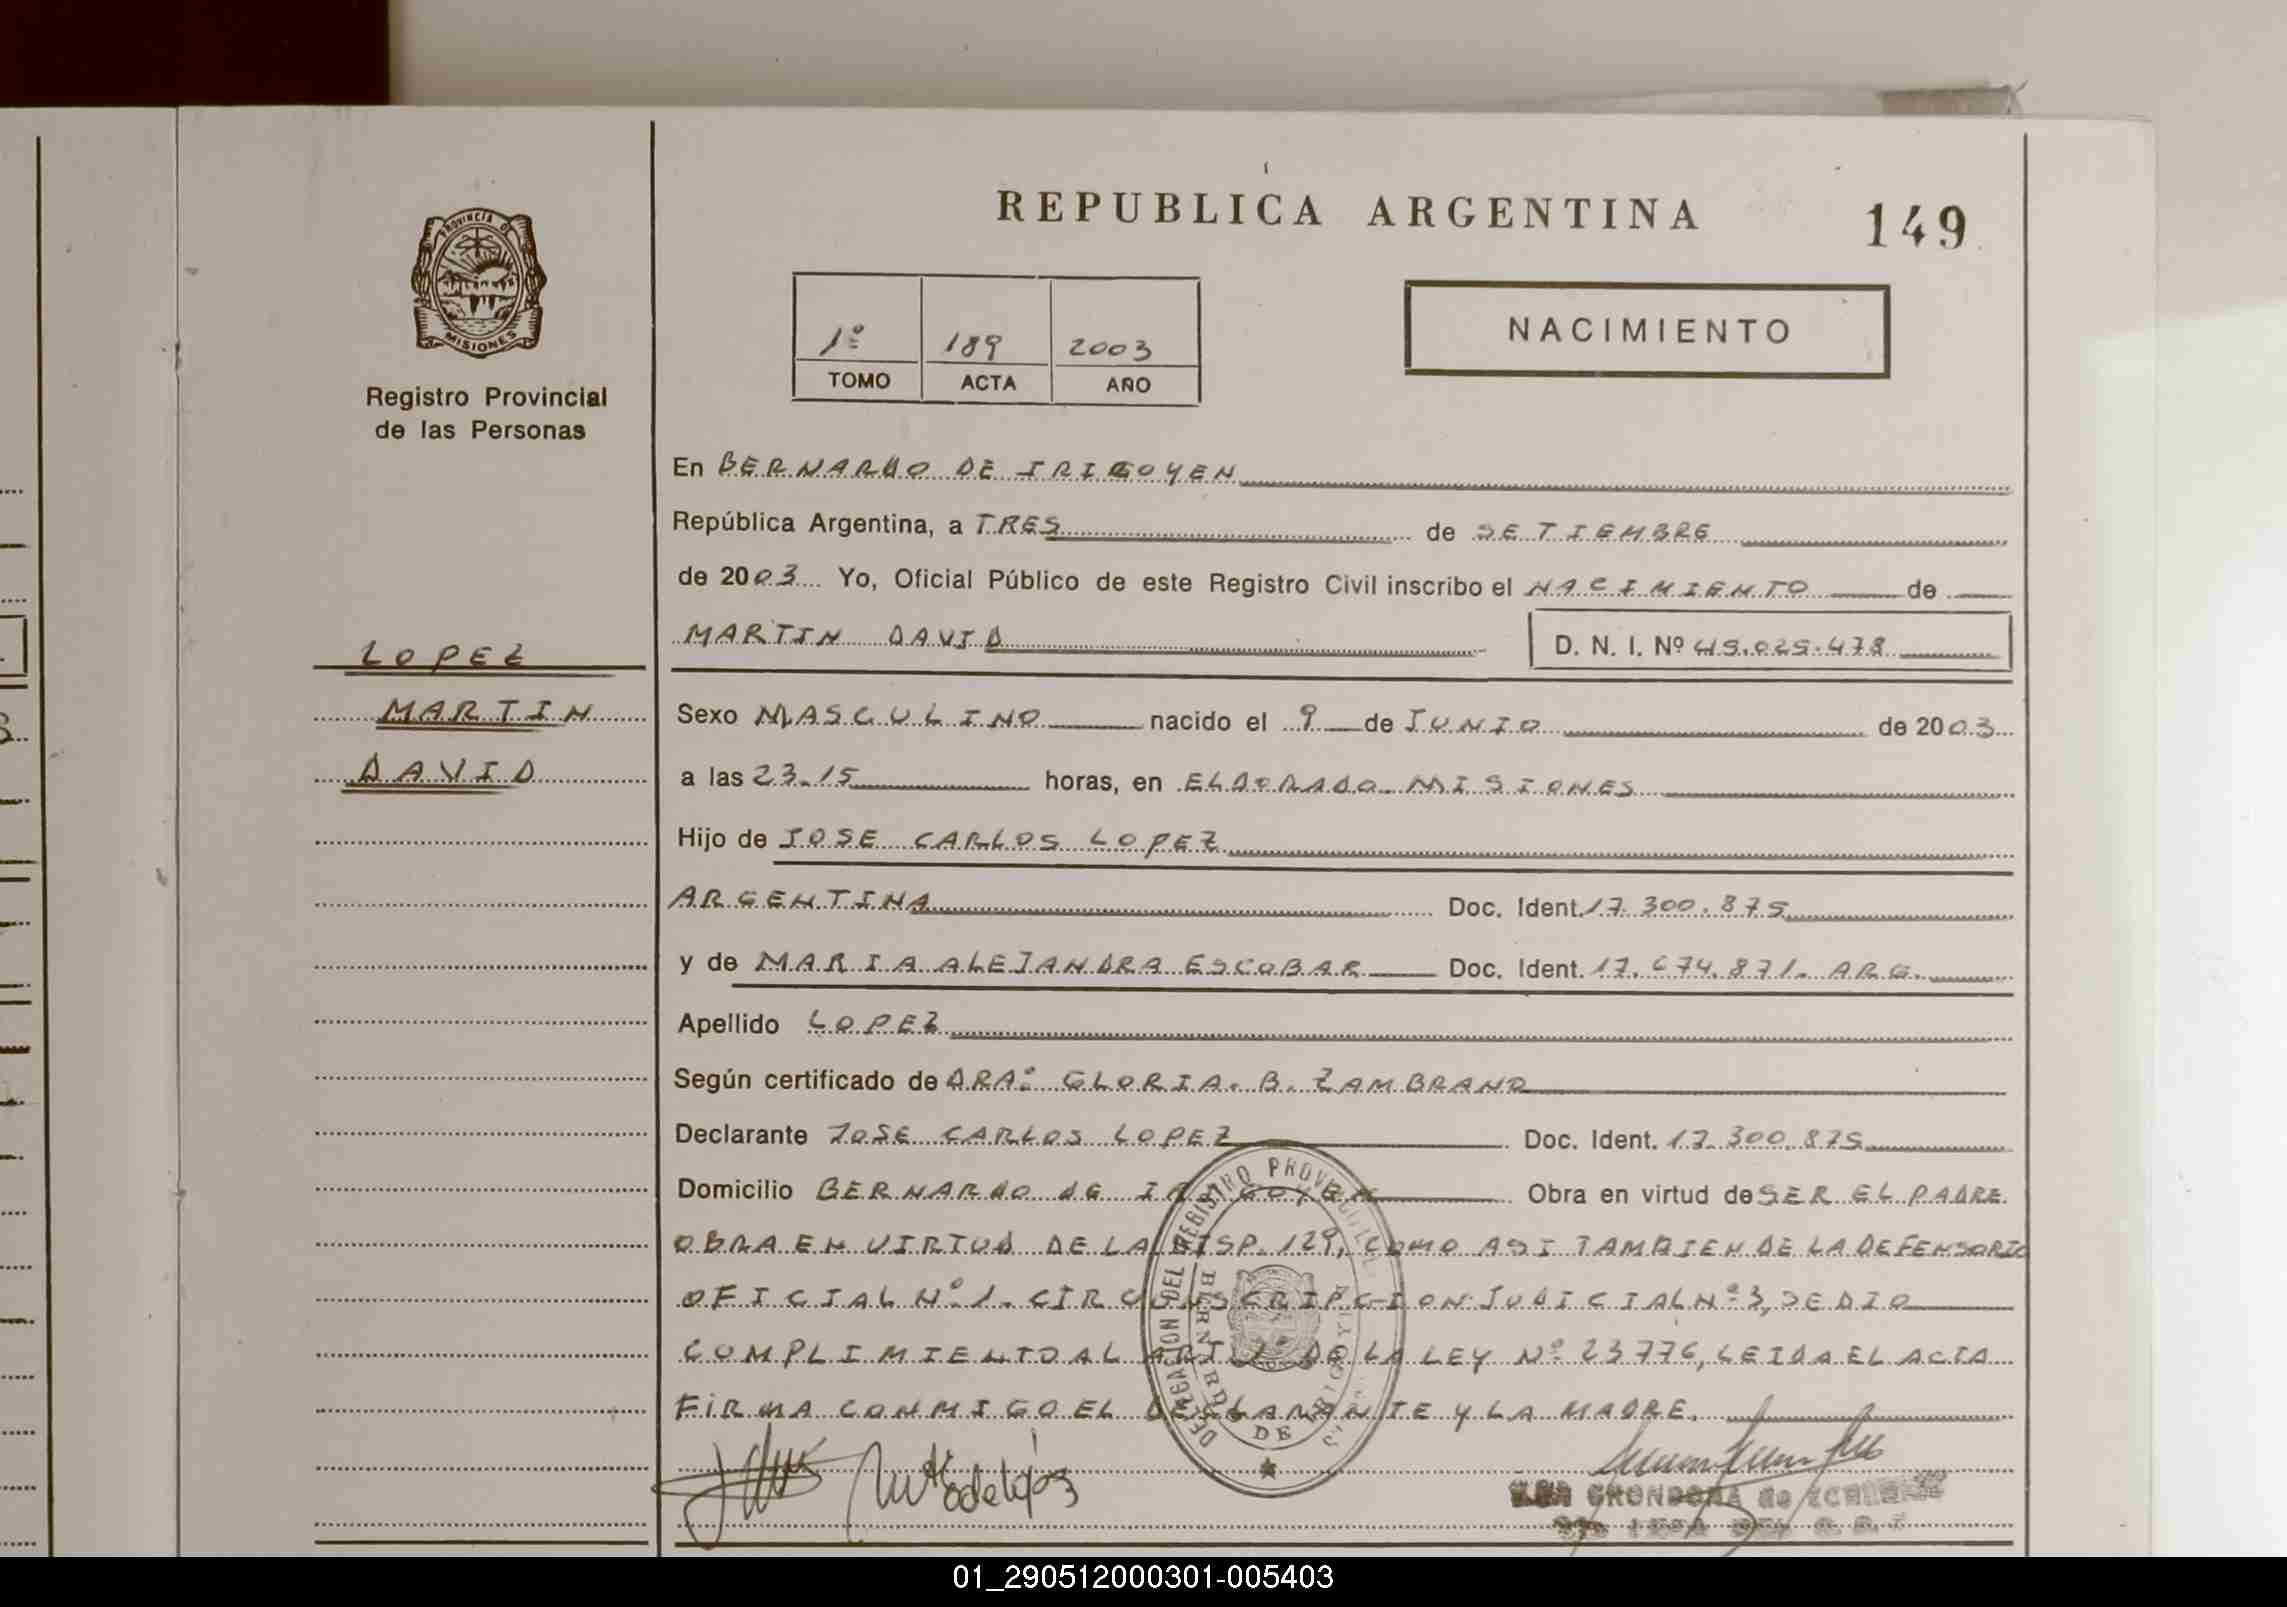 REPUBLICA ARGENTINA
149
PROVINCIA DE
MISIONES
Registro Provincial
de las Personas
1º 189 2003
TOMO ACTA AÑO
NACIMIENTO
En BERNARDO DE IRIGOYEN
República Argentina, a TRES de SETIEMBRE
de 2003 Yo, Oficial Público de este Registro Civil inscribo el NACIMIENTO de
MARTIN DAVID D. N. I. Nº 45.025.478
LOPEZ
MARTIN
DAVID
Sexo MASCULINO nacido el 9 de JUNIO de 2003
a las 23.15 horas, en ELDORADO. MISIONES
Hijo de JOSE CARLOS LOPEZ
ARGENTINA Doc. Ident. 17.300.875
y de MARIA ALEJANDRA ESCOBAR Doc. Ident. 17.674.871. ARG.
Apellido LOPEZ
Según certificado de DRAº GLORIA. B. ZAMBRANO
Declarante JOSE CARLOS LOPEZ Doc. Ident. 17.300.875
Domicilio BERNARDO DE IRIGOYEN Obra en virtud de SER EL PADRE
OBRA EN VIRTUD DE LA DISP. 129, COMO ASI TAMBIEN DE LA DEFENSORIA
OFICIAL Nº 1. CIRCUNSCRIPCION JUDICIAL Nº 3, SE DIO
COMPLIMIENTO AL DE LA LEY Nº 23776, LEIDA EL ACTA
FIRMA CONMIGO EL DECLARANTE Y LA MADRE.
DELEGACION DEL REGISTRO
BERNARDO DE IRIGOYEN
GRONDONA de
01_290512000301-005403